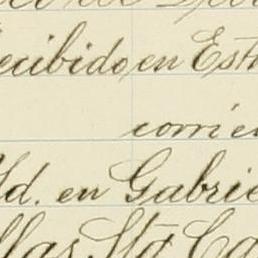 ecibido en Est
corrien
Vd. en Gabrie
llas Sta Ca